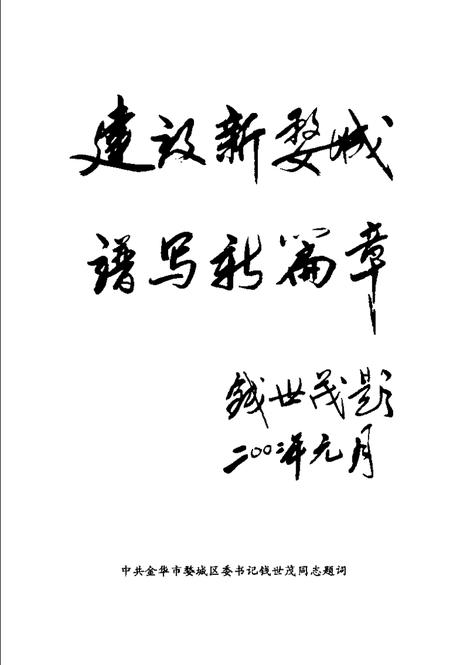 建设新婺城
谱写新篇章
钱世茂题
二００二年元月
中共金华市婺城区委书记钱世茂同志题词